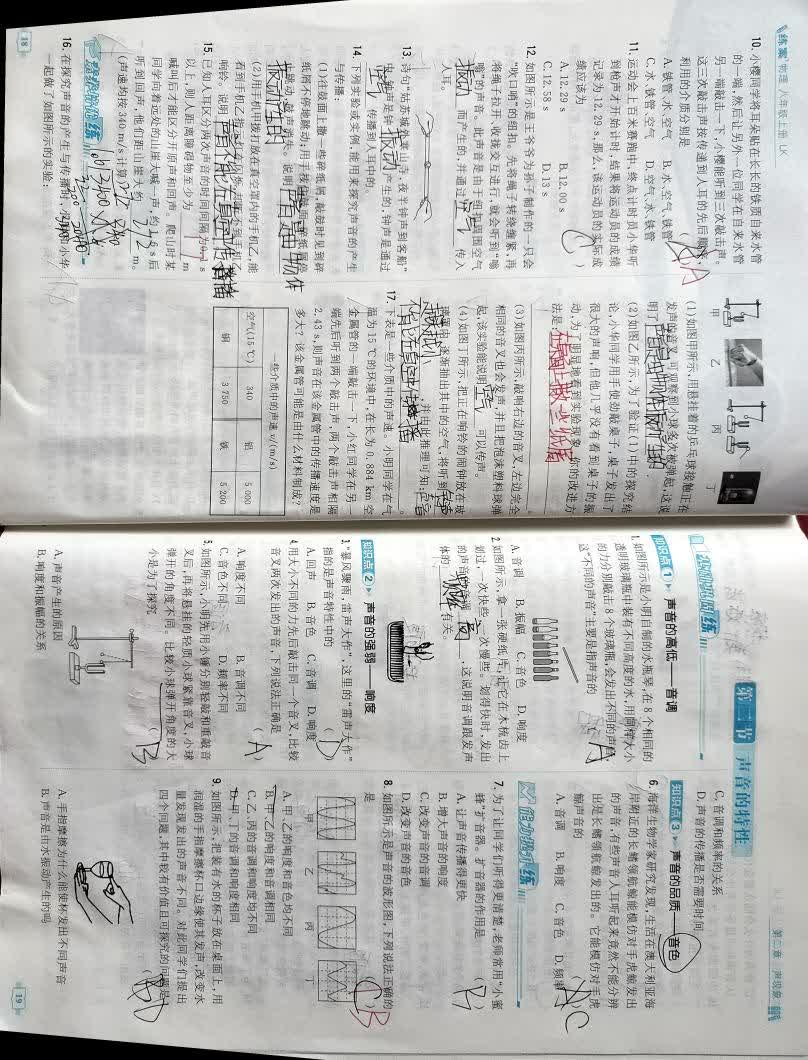 练案 物理 八年级上册 LK
10. 小樱同学将耳朵贴在长长的铁质自来水管
的一端,然后让另外一位同学在自来水管
另一端敲击一下,小樱能听到三次敲击声。
这三次敲击声按传递到人耳的先后顺序,
利用的介质分别是
A. 铁管 水 空气 B. 水 空气 铁管
C. 水 铁管 空气 D. 空气 水 铁管
11. 运动会上百米赛跑中,终点计时员小华听
到枪声才开始计时,结果将运动员的成绩
记录为 12.29 s,那么,该运动员的实际成
绩应该为 ( C )
A. 12.29 s B. 12.00 s
C. 12.58 s D. 13 s
12. 如图所示是王爷爷为孙子制作的一只会
“吹口哨”的纽扣。先将绳子转绕缠紧,再
将绳子拉开、收拢交互进行,就会听到“嗡
嗡”的声音。此声音是由于纽扣周围空气
振动 而产生的,并通过 空气 传入
人耳。
13. 诗句“姑苏城外寒山寺,夜半钟声到客船”
中,钟声由钟 振动 产生的,钟声是通过
空气 传播到人耳中的。
14. 下列实验或实例,能用来探究声音的产生
与传播:
(1)在鼓面上撒一些碎纸屑,敲鼓时见到碎
(2)用手机甲拨打放在真空罩内的手机乙,能
15. 已知人耳区分两次声音的时间间隔为0.1 s
以上,则人距离障碍物至少为 17 m
喊叫后才能区分开原声和回声。爬山时某
同学向着远处的山崖大喊一声,约1.6 s后
听到回声,他们距山崖大约 272 m。
(声速均按 340 m/s 计算)
提升训练
16. 在探究声音的产生与传播时,小明和小华
一起做了如图所示的实验:
18
甲 乙 丙 丁
(1)如图甲所示,用悬挂着的乒乓球接触正在
发声的音叉,可观察到小球多次被弹起,这说
明了
(2)如图乙所示,为了验证(1)中的探究结
论,小华同学用手使劲敲桌子,桌子发出了
很大的声响,但他几乎没有看到桌子的振
动,为了明显地看到实验现象,你的改进方
法是:
(3)如图丙所示,敲响右边的音叉,左边完全
相同的音叉也会发声,并且把泡沫塑料球弹
起,该实验能说明 空气 可以传声。
(4)如图丁所示,把正在响铃的闹钟放在玻
璃罩内,逐渐抽出其中的空气,将听到
,并由此推理可知
17. 下表是一些介质中的声速。小明同学在气
温为 15 ℃的环境中,在长为 0.884 km 空
金属管的一端敲击一下,小红同学在另一
端先后听到两个敲击声,两个敲击声相隔
2.43 s,则声音在该金属管中的传播速度是
多大?该金属管可能是由什么材料制成?
一些介质中的声速 v/(m/s)
空气(15 ℃) 340 铝 5 000
铜 3 750 铁 5 200
第二章 声现象
第二节 声音的特性
知识点 1 声音的高低——音调
1. 如图所示是小明自制的水瓶琴,在 8 个相同的
透明玻璃瓶中装有不同高度的水,用同样大小
的力分别敲击 8 个玻璃瓶,会发出不同的声音,
这“不同的声音”主要是指声音的 A
A. 音调 B. 振幅 C. 音色 D. 响度
2. 如图所示,拿一张硬纸片,让它在木梳齿上
划过,一次快些,一次慢些。划得快时,发出
的声音的音调 高 ,这说明音调跟发声
体的 频率 有关。
知识点 2 声音的强弱——响度
3. “暴风骤雨,雷声大作”,这里的“雷声大作”
指的是声音特性中的 ( D )
A. 回声 B. 音色 C. 音调 D. 响度
4. 用大小不同的力先后敲击同一个音叉,比较
音叉两次发出的声音,下列说法正确是
( A )
A. 响度不同 B. 音调不同
C. 音色不同 D. 频率不同
5. 如图所示,小明先用小锤分别轻敲和重敲音
叉后,再将悬挂的轻质小球紧靠音叉,小球
弹开的角度不同。比较小球弹开角度的大
小是为了探究 ( B )
A. 声音产生的原因
B. 响度和振幅的关系
C. 音调和频率的关系
D. 声音的传播是否需要时间
知识点 3 声音的品质——音色
6. 海洋生物学家研究发现,生活在澳大利亚海
岸附近的长鳍领航鲸能模仿对手虎鲸发出
的声音,有些声音人耳听起来竟然不能分辨
出是长鳍领航鲸发出的。它能模仿对手虎
鲸声音的
A. 音调 B. 响度 C. 音色 D. 频率
能力提升练
7. 为了让同学们听得更清楚,老师常用“小蜜
蜂”扩音器。扩音器的作用是 ( B )
A. 让声音传播得更快
B. 增大声音的响度
C. 改变声音的音调
D. 改变声音的音色
8. 如图所示是声音的波形图,下列说法正确的
是
甲 乙 丙 丁
A. 甲、乙的响度和音色均不同
B. 甲、乙的响度和音调相同
C. 乙、丙的音调和响度均不同
D. 甲、丁的音调和响度相同
9. 如图所示,把装有水的杯子放在桌面上,用
润湿的手指摩擦杯口边缘使其发声,改变水
量发现发出的声音不同。对此同学们提出
四个问题,其中较有价值且可探究的问题是
A. 手指摩擦为什么能使杯发出不同声音
B. 声音是由水振动产生的吗
19